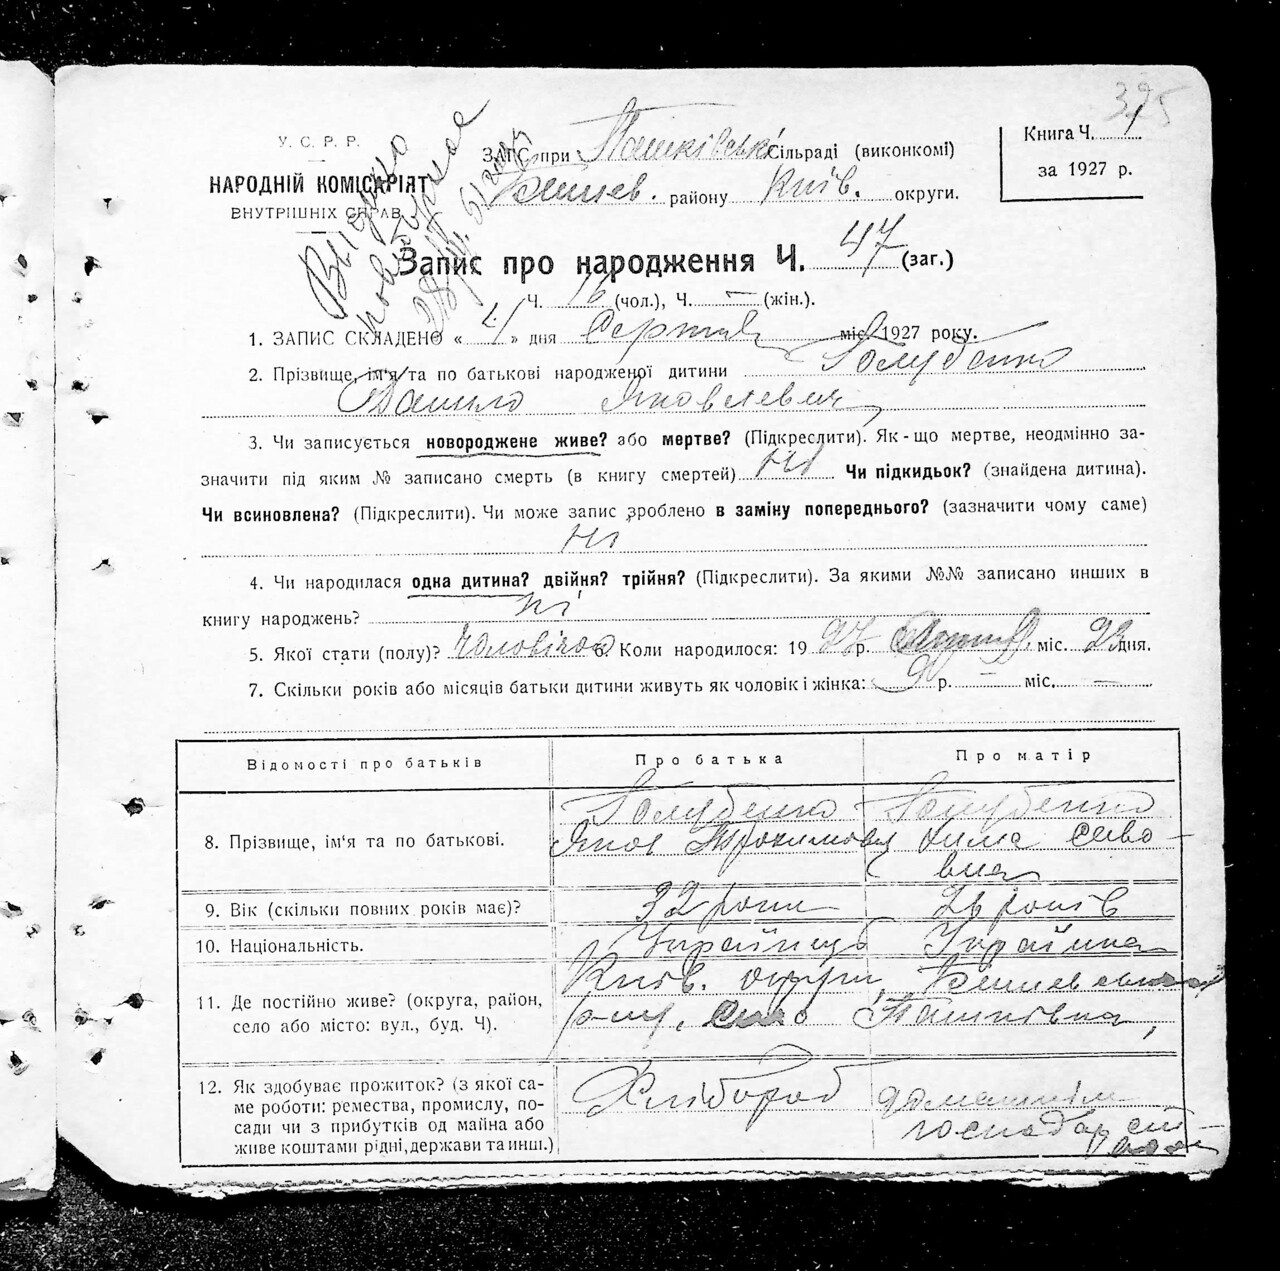 325
У. С. Р. Р.
НАРОДНІЙ КОМІСАРІЯТ
ВНУТРІШНІХ СПРАВ
Видано
повторное
ЗАПИС при Пашківські Сільраді (виконкомі)
Бишев. району Київ. округи.
Книга Ч. 1
за 1927 р.
Запис про народження Ч. 47 (заг.)
Ч. 16 (чол.), Ч. – (жін.).
1. ЗАПИС СКЛАДЕНО « 4 » дня Серпня міс. 1927 року.
2. Прізвище, ім'я та по батькові народженої дитини Голубенко
Данило Яковлевич
3. Чи записується новороджене живе? або мертве? (Підкреслити). Як-що мертве, неодмінно за-
значити під яким № записано смерть (в книгу смертей) Ні Чи підкидьок? (знайдена дитина).
Чи всиновлена? (Підкреслити). Чи може запис зроблено в заміну попереднього? (зазначити чому саме)
Ні
4. Чи народилася одна дитина? двійня? трійня? (Підкреслити). За якими №№ записано инших в
книгу народжень? ні
5. Якої стати (полу)? Чоловічої 6. Коли народилося: 19 27 р. міс. дня.
7. Скільки років або місяців батьки дитини живуть як чоловік і жінка: р. – міс. –
Відомості про батьків
Про батька
Про матір
8. Прізвище, ім'я та по батькові.
Голубенко
Яков Трохимович
Голубенко
Сиво-
вна
9. Вік (скільки повних років має)?
32 роки
26 років
10. Національність.
Українець
Українка
11. Де постійно живе? (округа, район,
село або місто: вул., буд. Ч).
Київ. округи, Бишевський
р-ну, село Пашківка,
12. Як здобуває прожиток? (з якої са-
ме роботи: ремества, промислу, по-
сади чи з прибутків од майна або
живе коштами рідні, держави та инш.)
Хлібороб
домашнім
господарст
вом